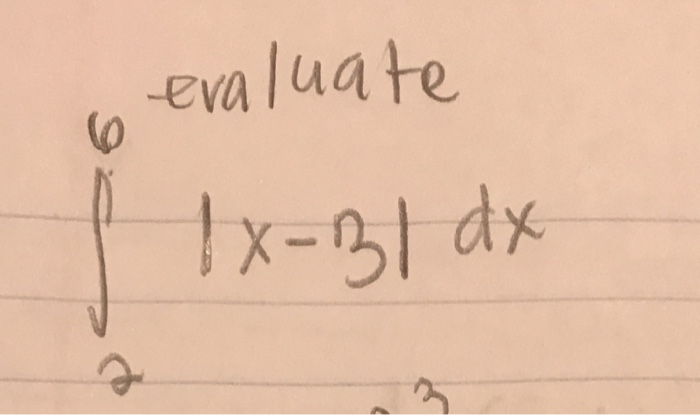 evaluate
6
∫ |x-3| dx
2
3